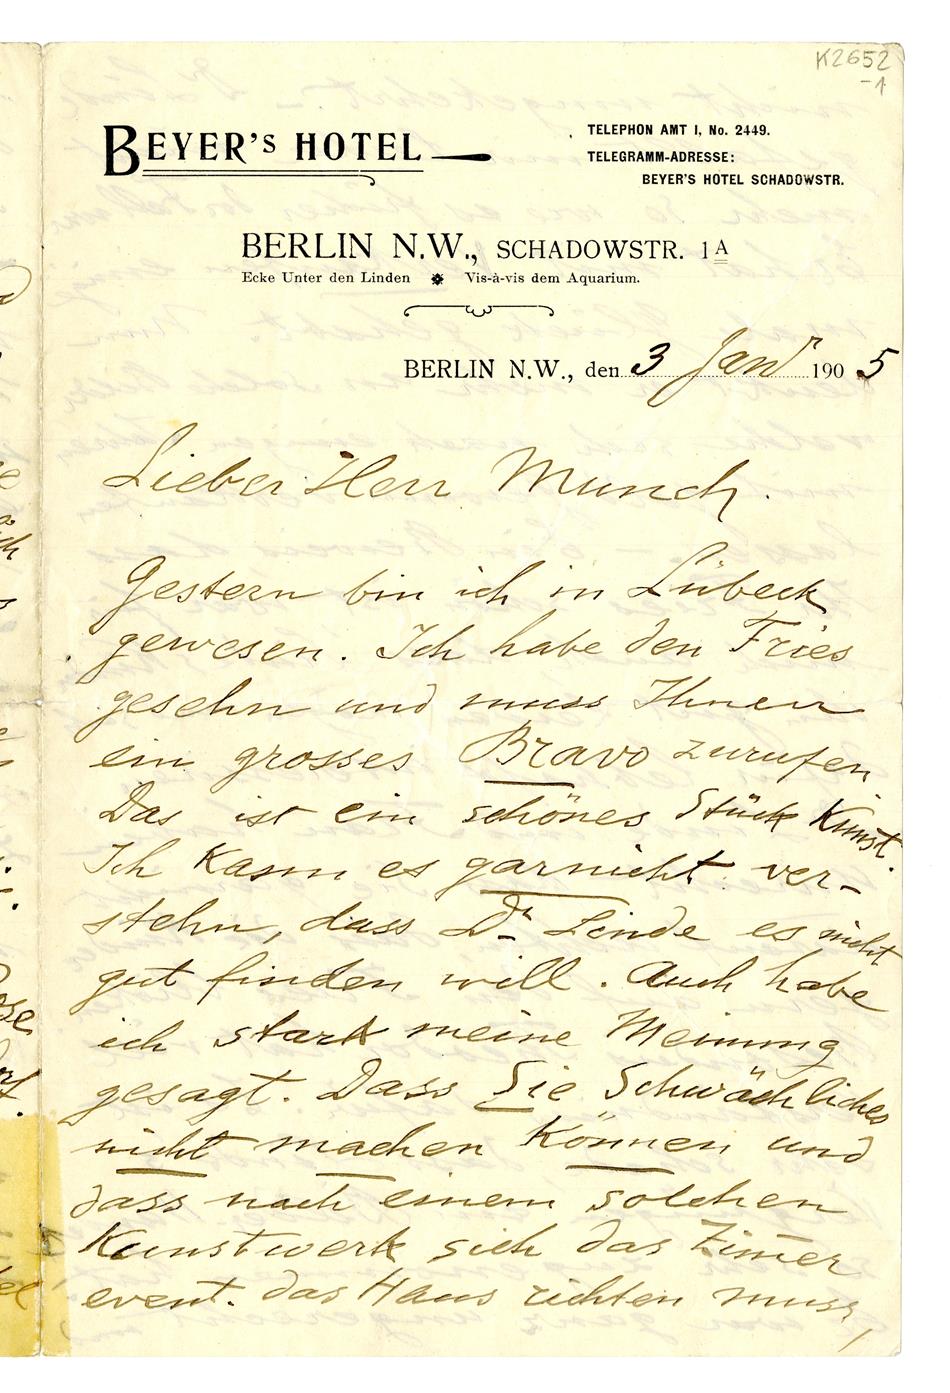 K2652
-1
BEYER'S HOTEL
TELEPHON AMT I, No. 2449.
TELEGRAMM-ADRESSE:
BEYER'S HOTEL SCHADOWSTR.
BERLIN N.W., SCHADOWSTR. 1A
Ecke Unter den Linden Vis-à-vis dem Aquarium.
BERLIN N.W., den 3 Janr 1905
Lieber Herr Munch.
Gestern bin ich in Lübeck
gewesen. Ich habe den Fries
gesehn und muss Ihnen
ein grosses Bravo zurufen.
Das ist ein schönes Stück Kunst.
Ich kann es garnicht ver-
stehn, dass Dr. Linde es nicht
gut finden will. Auch habe
ich stark meine Meinung
gesagt. Dass Sie Schwächliches
nicht machen können und
dass nach einem solchen
Kunstwerk sich das Zimer
event. das Haus richten muss,